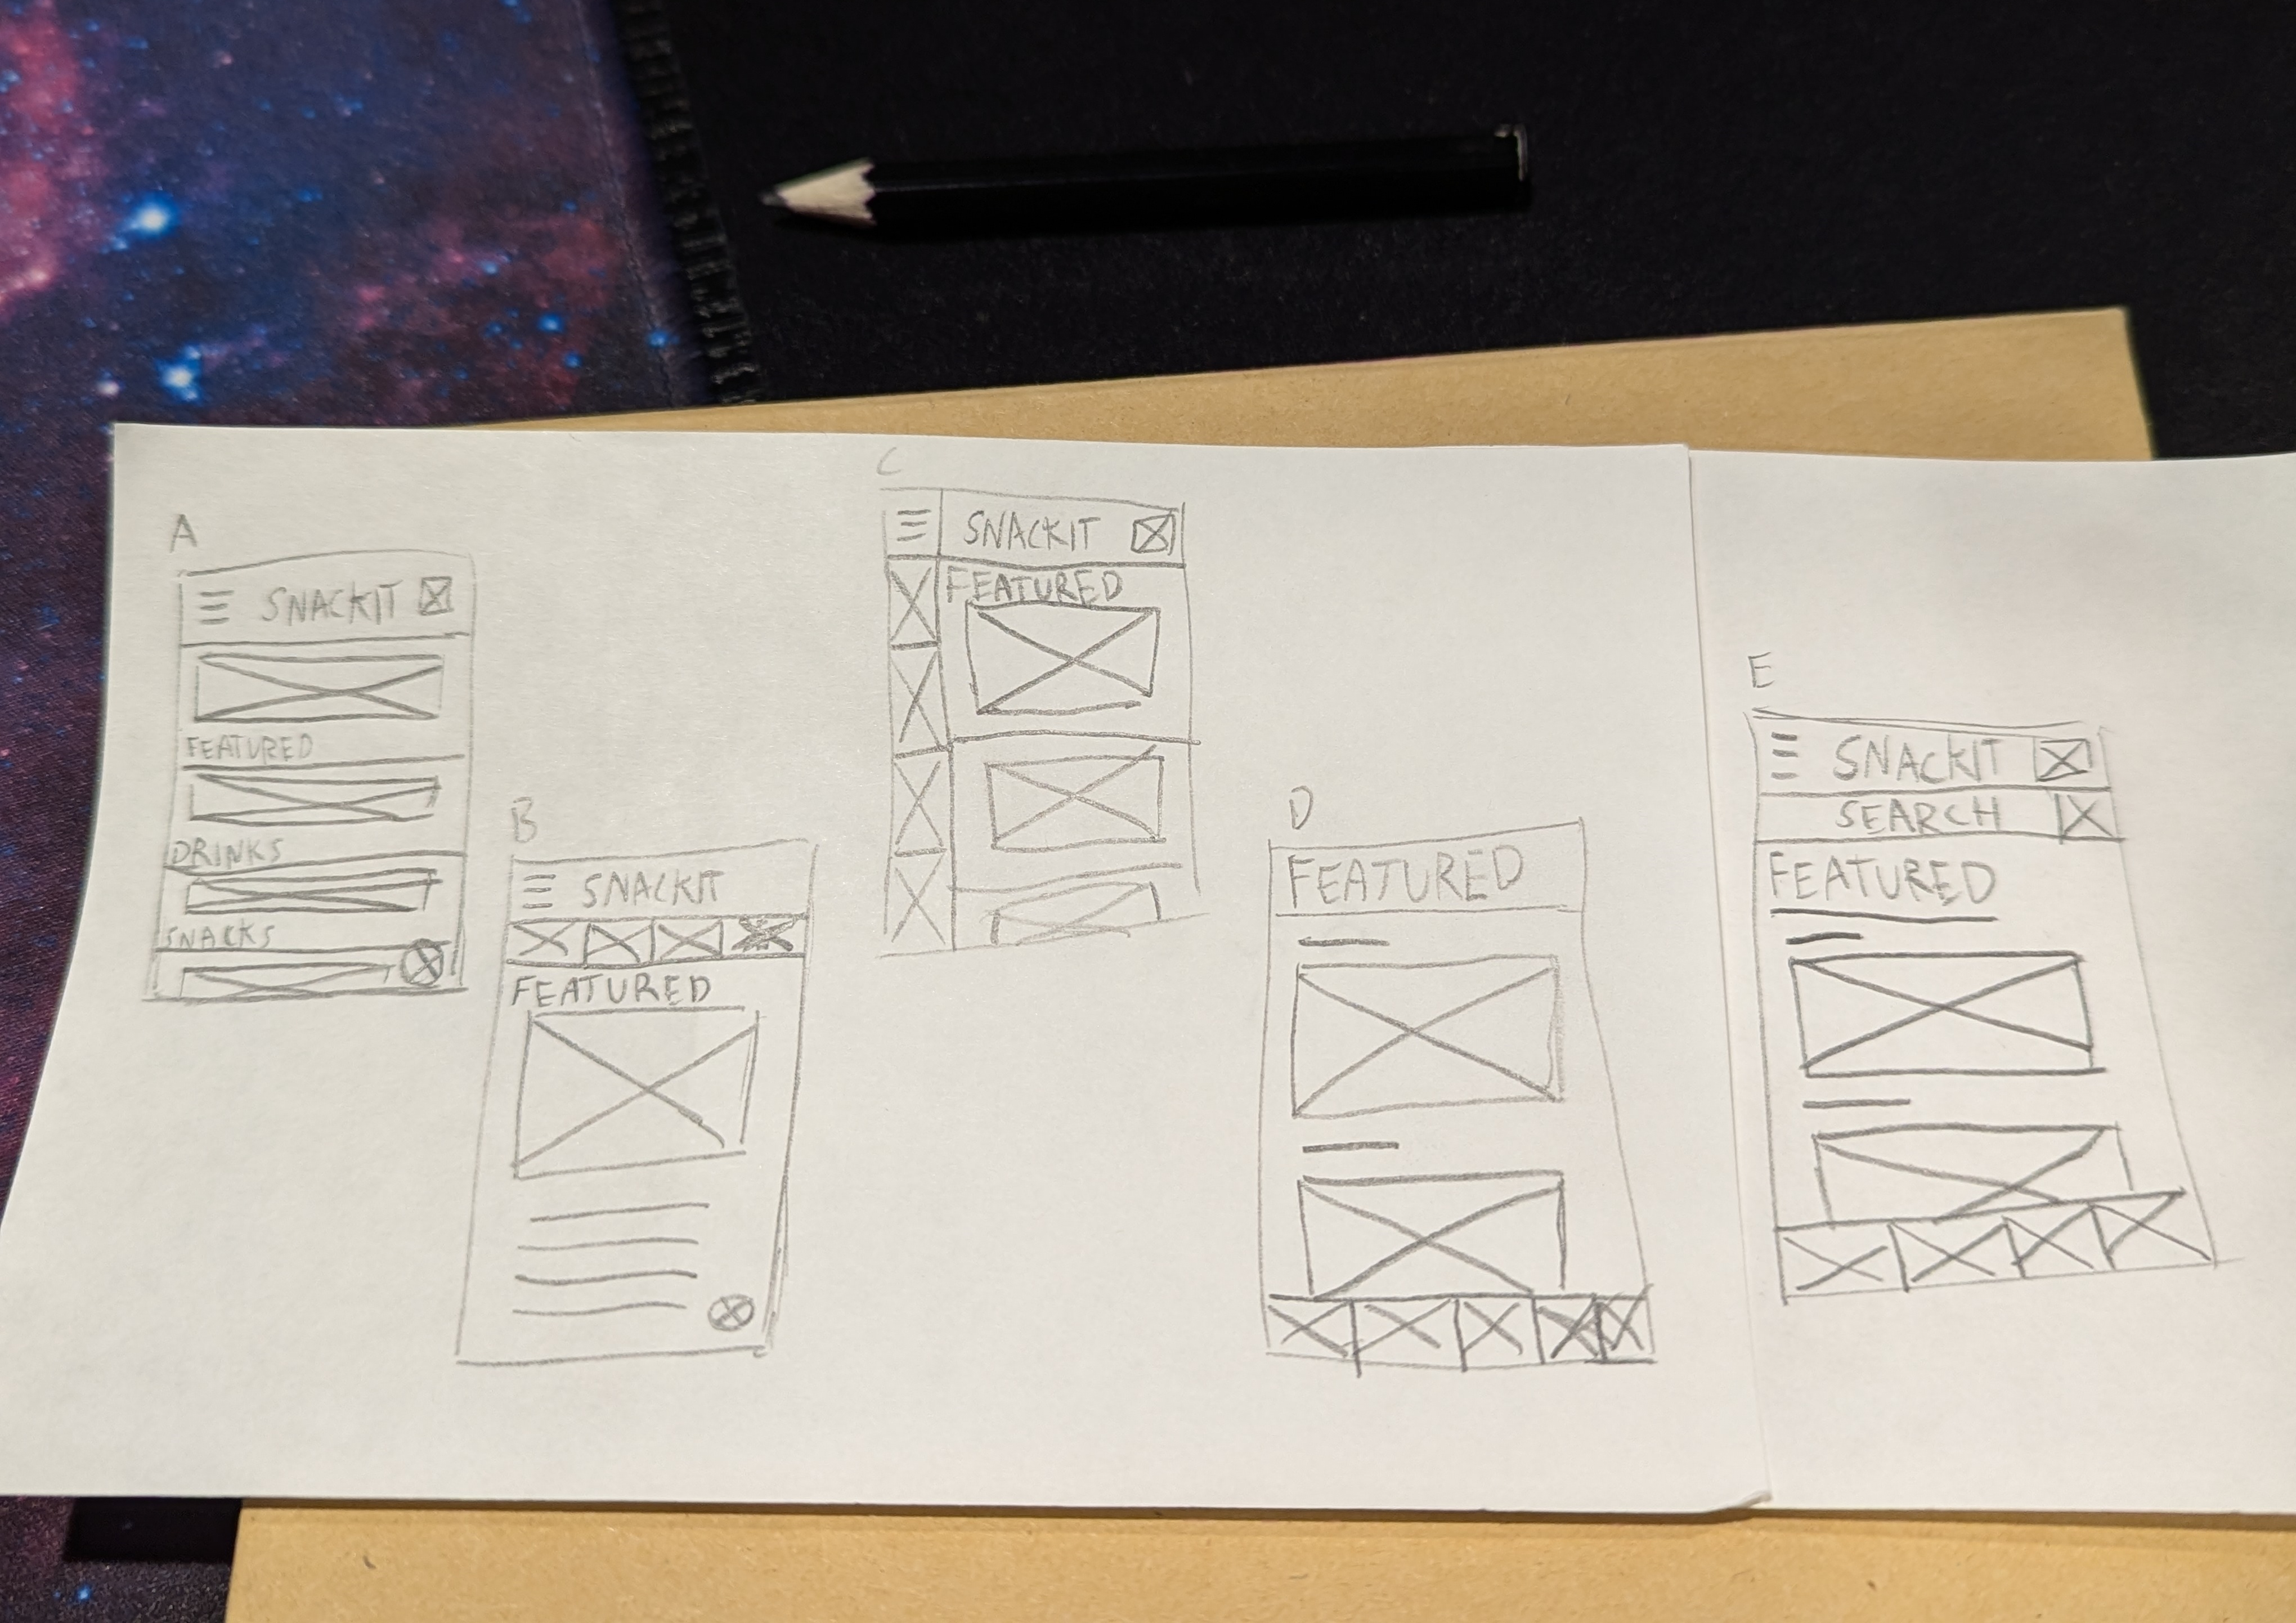 A
SNACKIT
FEATURED
DRINKS
SNACKS
B
SNACKIT
FEATURED
C
SNACKIT
FEATURED
D
FEATURED
E
SNACKIT
SEARCH
FEATURED